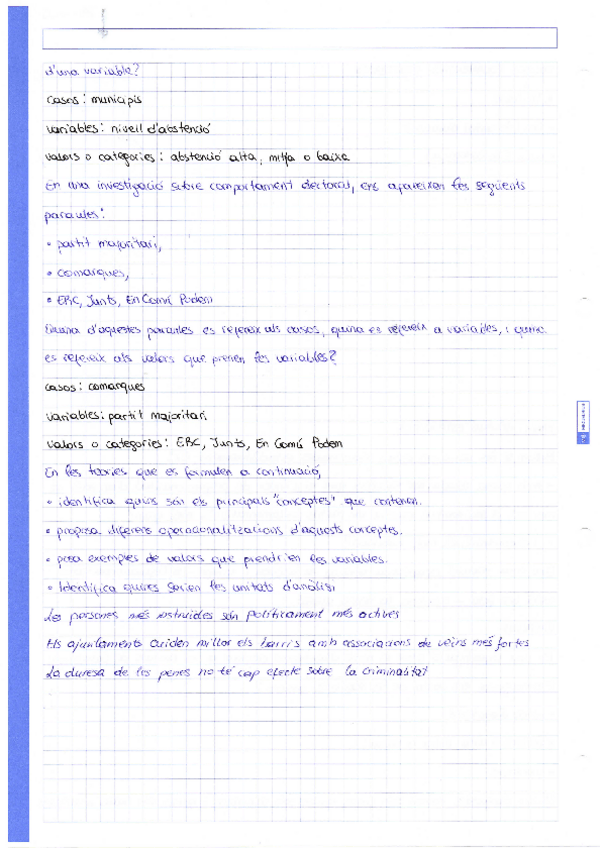 d'una variable?
casos: municipis
variables: nivell d'abstenció
valors o categories: abstenció alta, mitja o baixa
En una investigació sobre comportament electoral, ens apareixen les següents
paraules:
• partit majoritari,
• comarques,
• ERC, Junts, En Comú Podem
Quina d'aquestes paraules es refereix als casos, quina es refereix a variables, i quina
es refereix als valors que prenen les variables?
casos: comarques
variables: partit majoritari
valors o categories: ERC, Junts, En Comú Podem
En les teories que es formulen a continuació,
• identifica quins són els principals "conceptes" que contenen.
• proposa diferents operacionalitzacions d'aquests conceptes.
• posa exemples de valors que prendrien les variables.
• Identifica quines serien les unitats d'anàlisi
Les persones més instruides són políticament més actives
Els ajuntaments cuiden millor els barris amb associacions de veïns més fortes
La duresa de les penes no té cap efecte sobre la criminalitat